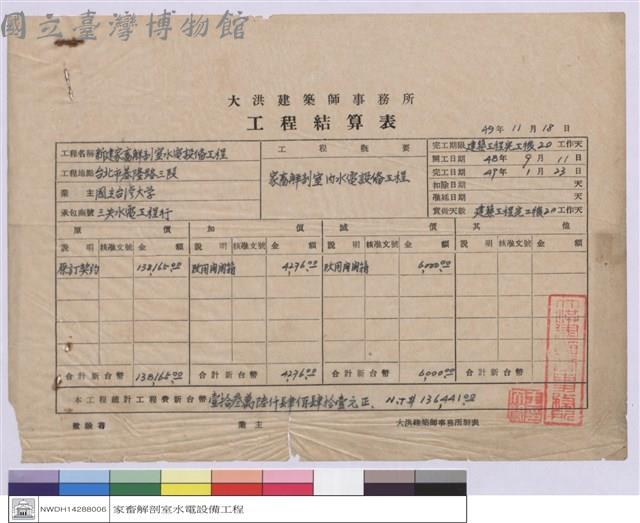 國立臺灣博物館
大洪建築師事務所
工程結算表
49年11月18日
工程名稱 新建家畜解剖室水電設備工程
工程地點 台北市基隆路三段
業主 國立台灣大学
承包商號 三光水電工程行
工程概要
家畜解剖室内水電設備工程
完工期限 建築工程完工後20工作天
開工日期 48年9月11日
完工日期 49年1月23日
扣除日期 天
准延日期 天
實做天數 建築工程完工後20工作天
原價 加價 減價 其他
說明 核准文號 金額 說明 核准文號 金額 說明 核准文號 金額 說明 核准文號 金額
原訂契約 138,165.00 改用開関箱 4,276.00 改用開関箱 6,000.00
合計新台幣 138,165.00 合計新台幣 4,276.00 合計新台幣 6,000.00 合計新台幣
本工程總計工程費新台幣 壹拾叁萬陸仟肆佰肆拾壹元正. N.T$136,441.00
監驗者 業主 大洪建築師事務所製表
NWDH14288006 家畜解剖室水電設備工程